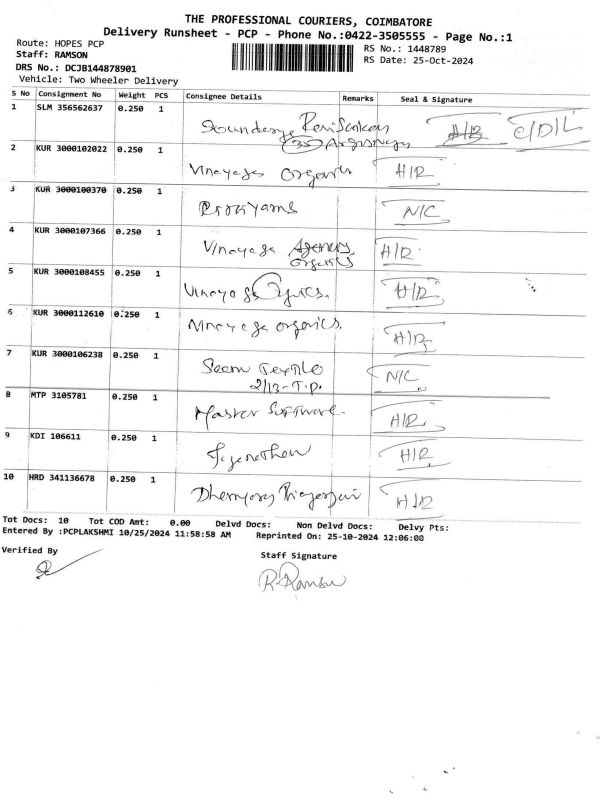 THE PROFESSIONAL COURIERS, COIMBATORE
Delivery Runsheet - PCP - Phone No.:0422-3505555 - Page No.:1
Route: HOPES PCP
RS No.: 1448789
Staff: RAMSON
RS Date: 25-Oct-2024
DRS No.: DCJB144878901
Vehicle: Two Wheeler Delivery
S No Consignment No Weight PCS Consignee Details Remarks Seal & Signature
1 SLM 356562637 0.250 1 H/R C/D/L
2 KUR 3000102022 0.250 1 Vinayaga Organics H/R
3 KUR 3000100370 0.250 1 N/C
4 KUR 3000107366 0.250 1 Vinayaga Agency H/R
Organics
5 KUR 3000108455 0.250 1 Vinayaga Organics. H/R
6 KUR 3000112610 0.250 1 Vinayaga organics. H/R
7 KUR 3000106238 0.250 1 Textile N/C
2/13-T.P.
8 MTP 3105781 0.250 1 Master Software. H/R
9 KDI 106611 0.250 1 Jaganathan H/R
10 HRD 341136678 0.250 1 H/R
Tot Docs: 10 Tot COD Amt: 0.00 Delvd Docs: Non Delvd Docs: Delvy Pts:
Entered By :PCPLAKSHMI 10/25/2024 11:58:58 AM Reprinted On: 25-10-2024 12:06:00
Verified By
Staff Signature
R. Ramson